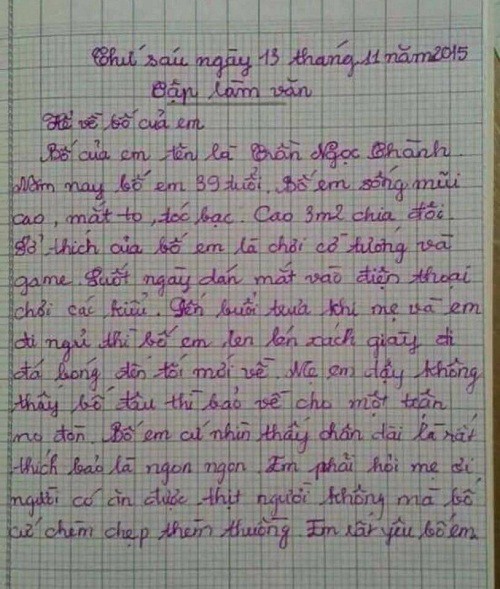 Thứ sáu ngày 13 tháng 11 năm 2015
Tập làm văn
Tả về bố của em
Bố của em tên là Trần Ngọc Thành.
Năm nay bố em 39 tuổi. Bố em sống mũi
cao, mắt to, tóc bạc. Cao 3m2 chia đôi.
Sở thích của bố em là chơi cờ tướng và
game. Suốt ngày dán mắt vào điện thoại
chơi các kiểu. Đến buổi trưa khi mẹ và em
đi ngủ thì bố em lẻn lén xách giày đi
đá bóng đến tối mới về. Mẹ em dậy không
thấy bố đâu thì bảo về cho một trận
no đòn. Bố em cứ nhìn thấy chân dài là rất
thích bảo là ngon ngon. Em phải hỏi mẹ ơi
người có ăn được thịt người không mà bố
cứ chẹm chẹp thèm thuồng. Em rất yêu bố em.